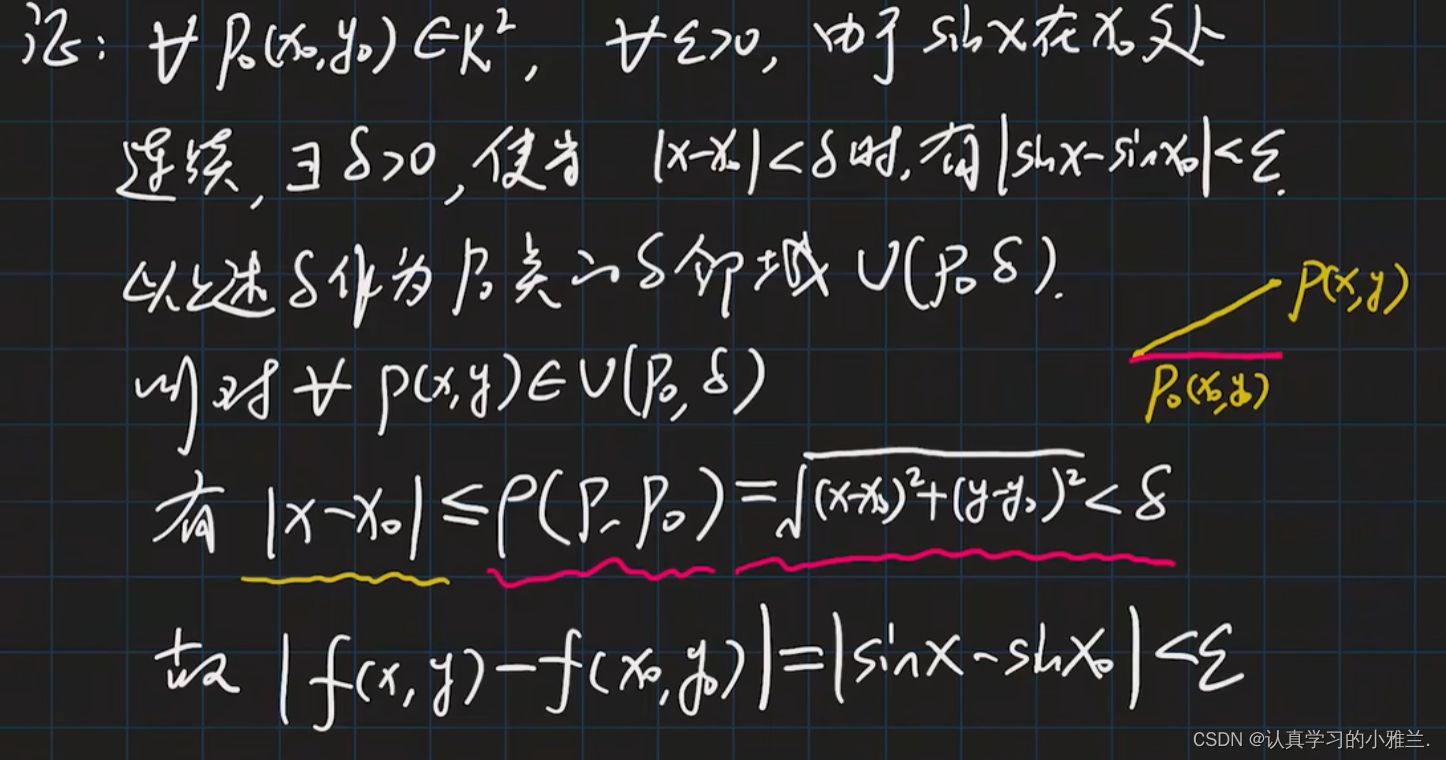 证: ∀ P₀(x₀,y₀)∈R², ∀ε>0, 由于 sin x 在 x₀ 处
连续, ∃ δ>0, 使当 |x-x₀|<δ 时, 有|sin x-sin x₀|<ε.
以上述 δ 作为 P₀ 点的 δ 邻域 U(P₀ δ).
P(x,y)
则对 ∀ P(x,y)∈U(P₀, δ)
P₀(x₀,y₀)
有 |x-x₀|≤ρ(P, P₀)=√((x-x₀)²+(y-y₀)²)<δ
故 |f(x,y)-f(x₀,y₀)|=|sin x-sin x₀|<ε
CSDN @认真学习的小雅兰.